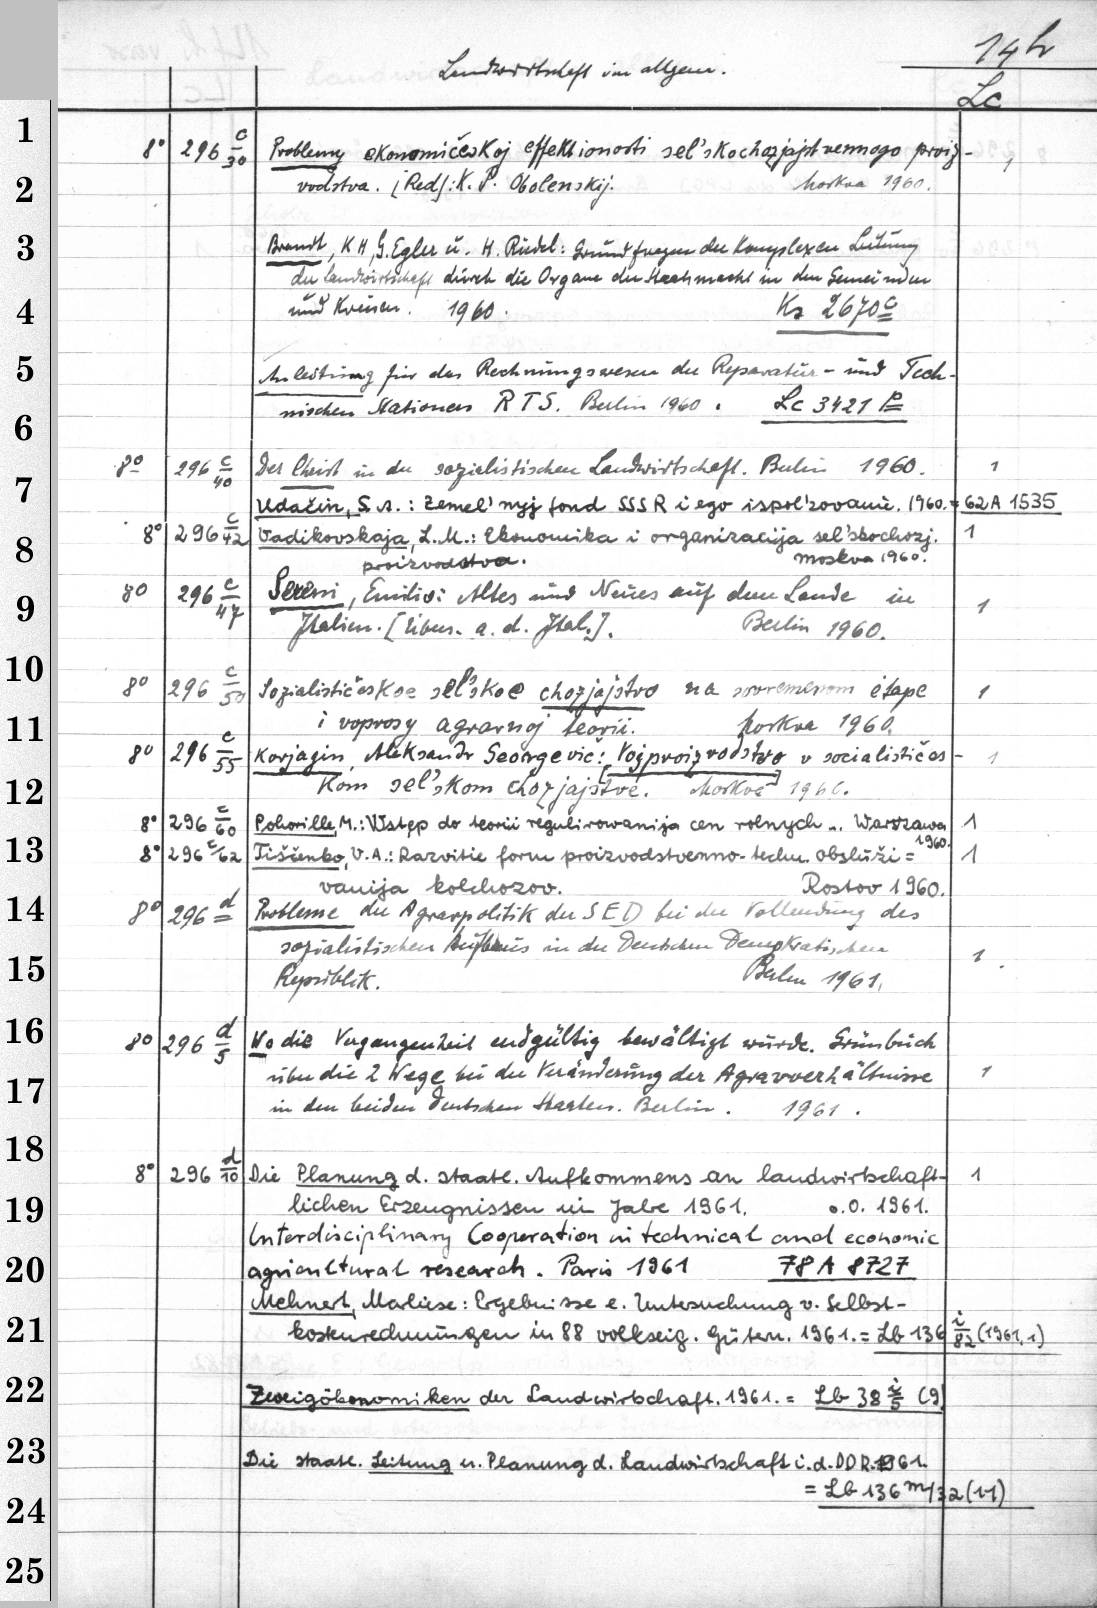 14h
Landwirtschaft im allgem.
Lc
1
8° 296 c/30 Problemy ekonomičeskoj effektionosti sel'skochozjajstvennogo proiz- 1
2
vodstva. [Red]: K. P. Obolenskij. Moskva 1960.
3
Brandt, K H, G. Egler u. H. Riedel: Grundfragen der komplexen Leitung
der Landwirtschaft durch die Organe der Staatsmacht in den Gemeinden
4
und Kreisen. 1960. Kz 2670 c
5
Anleitung für das Rechnungswesen der Reparatur- und Tech-
nischen Stationen RTS. Berlin 1960. Lc 3421 p
6
8° 296 c/40 Der Christ in der sozialistischen Landwirtschaft. Berlin 1960. 1
7
Udačin, S. A.: Zemel'nyj fond SSSR i ego ispol'zovanie. 1960. = 62 A 1535
8° 296 c/42 Vadikovskaja, L. M.: Ekonomika i organizacija sel'skochozj. 1
8
proizvodstva. Moskva 1960.
8° 296 c/47 Sereni, Emilio: Altes und Neues auf dem Lande in 1
9
Italien. [Übers. a. d. Ital.]. Berlin 1960.
10
8° 296 c/50 Sozialističeskoe sel'skoe chozjajstvo na sovremenom etape 1
11
i voprosy agrarnoj teorii. Moskva 1960.
8° 296 c/55 Korjagin, Aleksandr Georgevič: [Vojproizvodstvo] v socialističes- 1
12
kom sel'skom chozjajstve. Moskva 1960.
8° 296 c/60 Pohorille, M.: Wstęp do teorii regulirowanija cen rolnych .. Warszawa 1960. 1
13
8° 296 c/62 Tiščenko, V. A.: Razvitie form proizvodstvenno-techn. obsluži= 1
vanija kolchozov. Rostov 1960.
14
8° 296 d Probleme der Agrarpolitik der SED bei der Vollendung des
sozialistischen Aufbaus in der Deutschen Demokratischen 1
15
Republik. Berlin 1961.
16
8° 296 d/5 Wo die Vergangenheit endgültig bewältigt wurde. Grünbuch
über die 2 Wege bei der Veränderung der Agrarverhältnisse 1
17
in den beiden deutschen Staaten. Berlin. 1961.
18
8° 296 d/10 Die Planung d. staatl. Aufkommens an landwirtschaft- 1
19
lichen Erzeugnissen im Jahre 1961. o.O. 1961.
Interdisciplinary Cooperation in technical and economic
20
agricultural research. Paris 1961 78 A 8727
Mehnert, Marliese: Ergebnisse e. Untersuchung v. Selbst-
21
kostenrechnungen in 88 volkseig. Gütern. 1961. = Lb 136 i/82 (1961,1)
22
Zweigökonomiken der Landwirtschaft. 1961. = Lb 38 i/5 (9)
23
Die staatl. Leitung u. Planung d. Landwirtschaft i. d. DDR. 1961.
= Lb 136 m/32 (11)
24
25